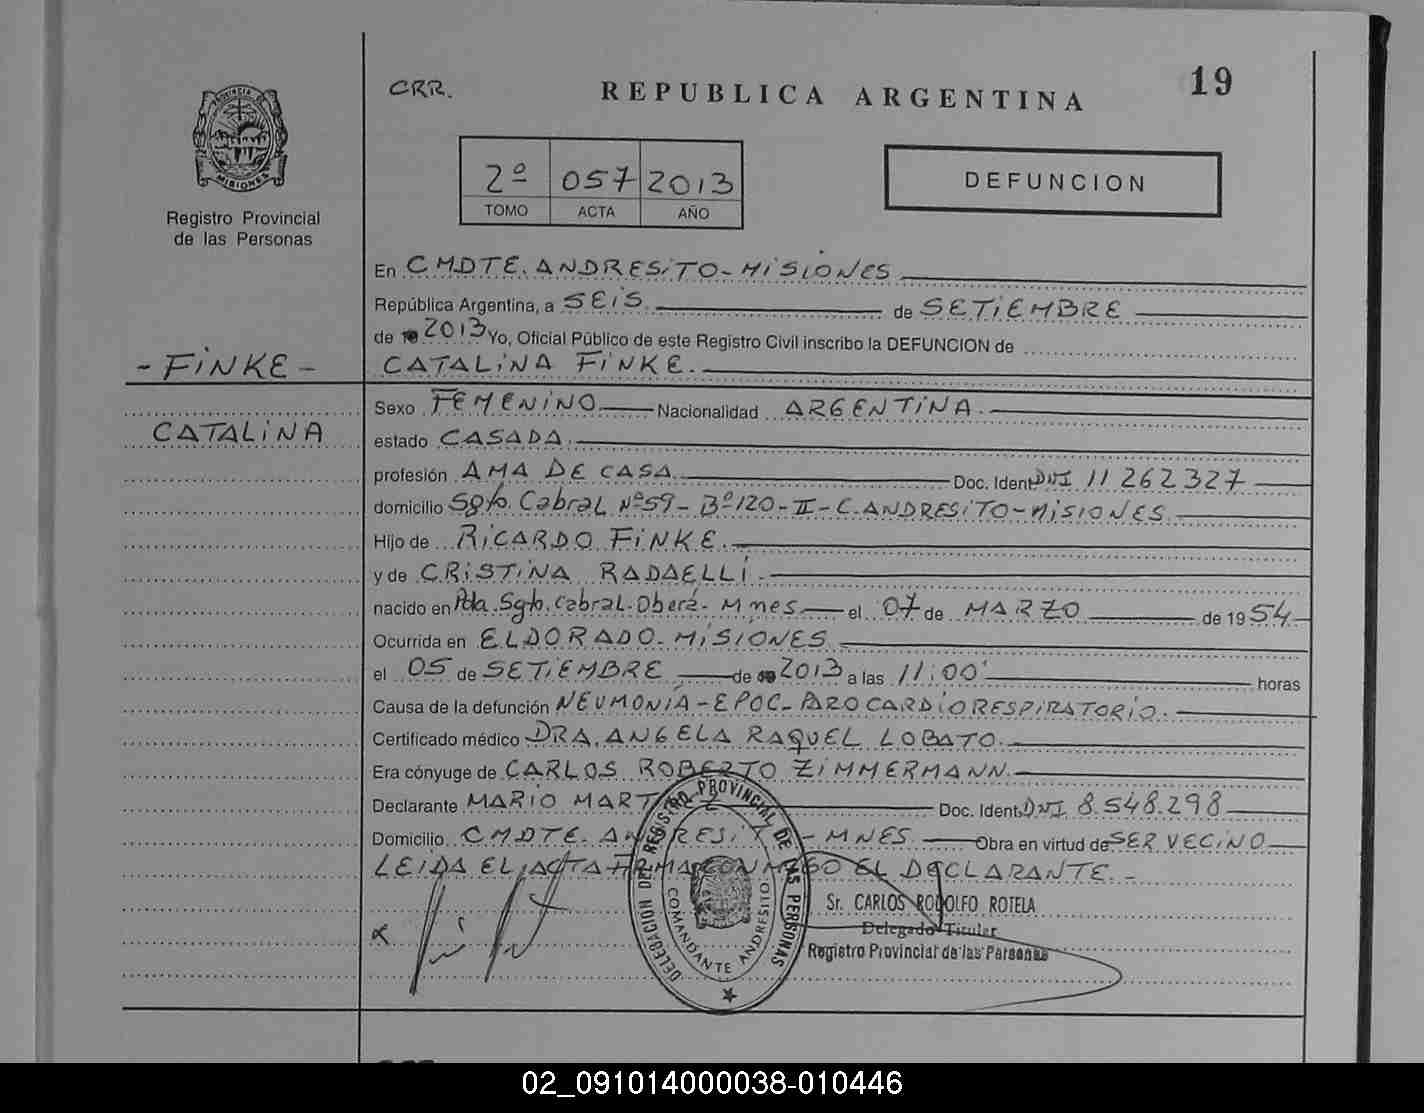 19
CRR.
REPUBLICA ARGENTINA
PROVINCIA DE
MISIONES
Registro Provincial
de las Personas
2º 057 2013
TOMO ACTA AÑO
DEFUNCION
En CMDTE. ANDRESITO - MISIONES
República Argentina, a SEIS de SETIEMBRE
de 2013 Yo, Oficial Público de este Registro Civil inscribo la DEFUNCION de
- FINKE - CATALINA FINKE.
Sexo FEMENINO Nacionalidad ARGENTINA.
CATALINA estado CASADA.
profesión AMA DE CASA Doc. Ident. DNI 11 262 327
domicilio Sgto. Cabral Nº 59 - Bº 120 - II - C. ANDRESITO - MISIONES
Hijo de RICARDO FINKE.
y de CRISTINA RADAELLI.
nacido en Pda. Sgto. Cabral. Oberá - Mnes el 07 de MARZO de 1954
Ocurrida en ELDORADO - MISIONES
el 05 de SETIEMBRE de 2013 a las 11:00' horas
Causa de la defunción NEUMONÍA - EPOC - PARO CARDIORESPIRATORIO.
Certificado médico DRA. ANGELA RAQUEL LOBATO.
Era cónyuge de CARLOS ROBERTO ZIMMERMANN.
Declarante MARIO MARTINEZ Doc. Ident. DNI 8.548.298
Domicilio CMDTE. ANDRESITO - MNES Obra en virtud de SER VECINO
LEIDA EL ACTA FIRMA CONMIGO EL DECLARANTE. -
DELEGACION DEL REGISTRO PROVINCIAL DE LAS PERSONAS
COMANDANTE ANDRESITO
Sr. CARLOS RODOLFO ROTELA
Delegado Titular
Registro Provincial de las Personas
02_091014000038-010446